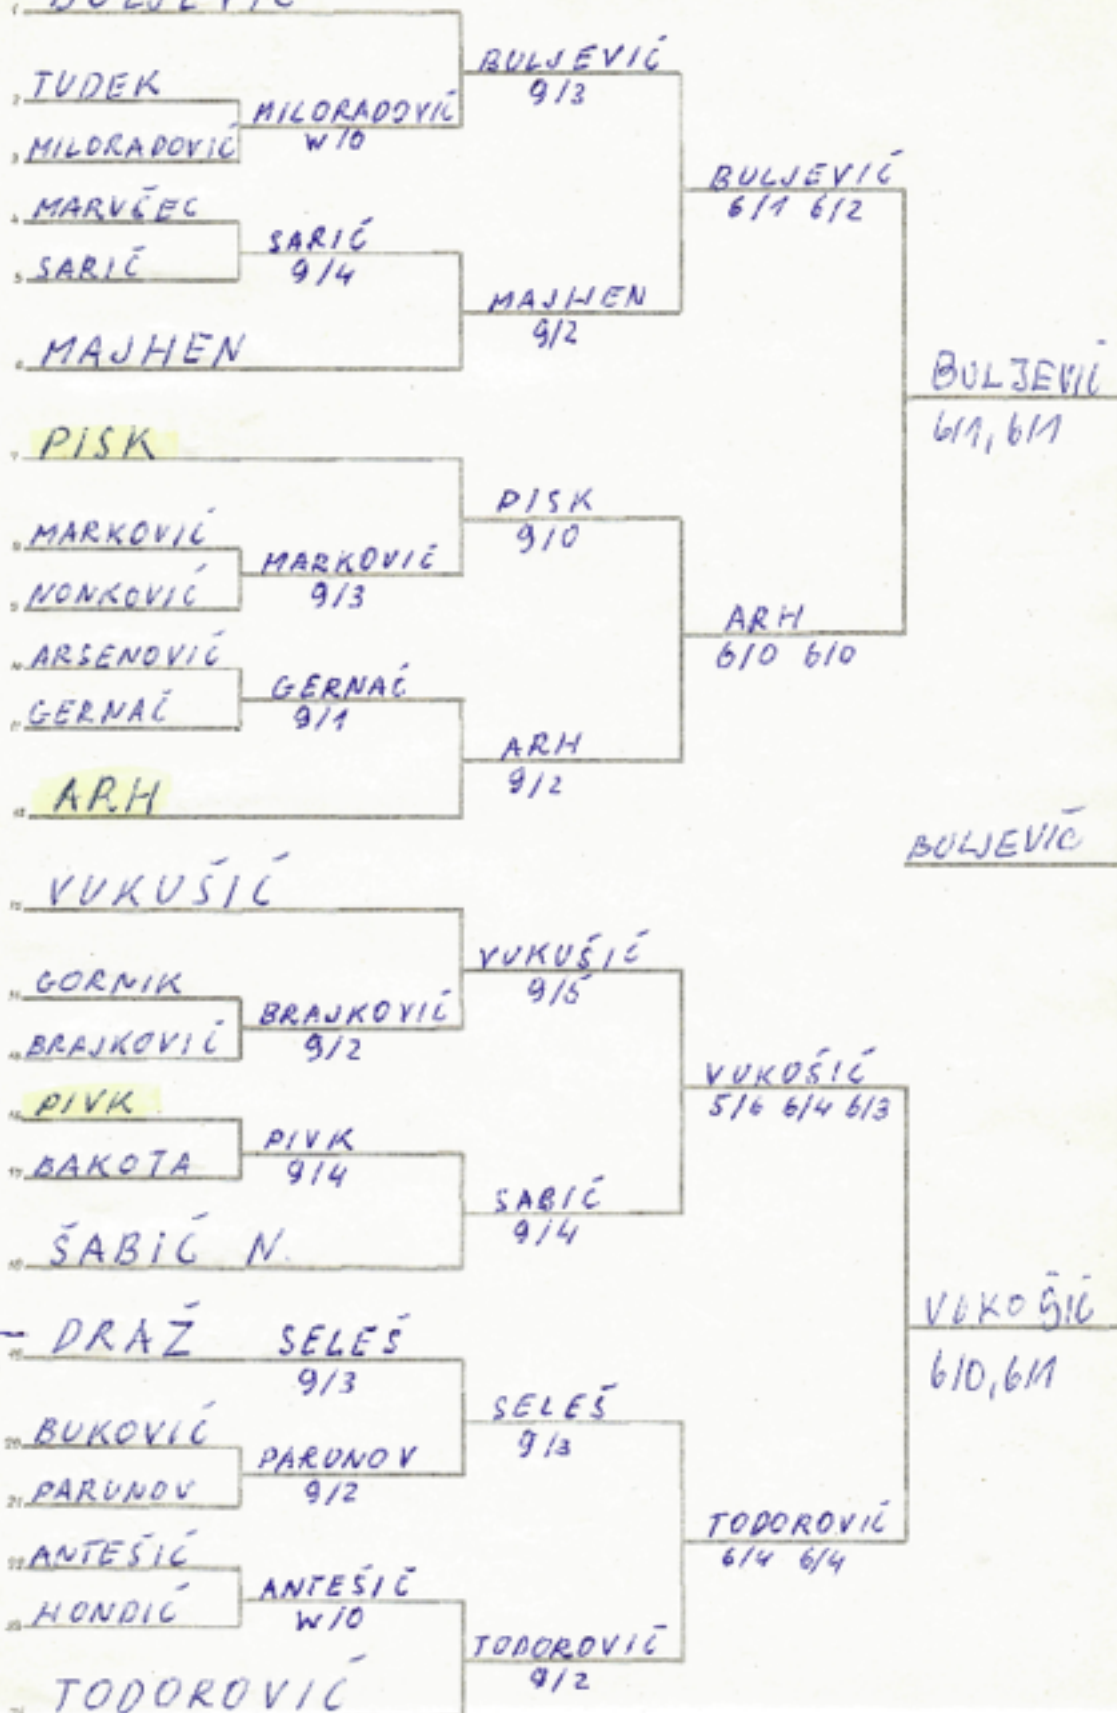 BULJEVIĆ
TUDEK
MILORADOVIĆ
MARVČEC
SARIĆ
MAJHEN
PISK
MARKOVIĆ
NONKOVIĆ
ARSENOVIĆ
GERNAĆ
ARH
VUKUŠIĆ
GORNIK
BRAJKOVIĆ
PIVK
BAKOTA
ŠABIĆ N.
DRAŽ
BUKOVIĆ
PARUNOV
ANTEŠIĆ
HONDIĆ
TODOROVIĆ
MILORADOVIĆ
w/0
SARIĆ
9/4
MARKOVIĆ
9/3
GERNAĆ
9/1
BRAJKOVIĆ
9/2
PIVK
9/4
SELEŠ
9/3
PARUNOV
9/2
ANTEŠIĆ
w/0
BULJEVIĆ
9/3
MAJHEN
9/2
PISK
9/0
ARH
9/2
VUKUŠIĆ
9/5
SABIĆ
9/4
SELEŠ
9/3
TODOROVIĆ
9/2
BULJEVIĆ
6/1 6/2
ARH
6/0 6/0
VUKOŠIĆ
5/6 6/4 6/3
TODOROVIĆ
6/4 6/4
BULJEVIĆ
6/1, 6/1
VUKOŠIĆ
6/0, 6/1
BULJEVIĆ